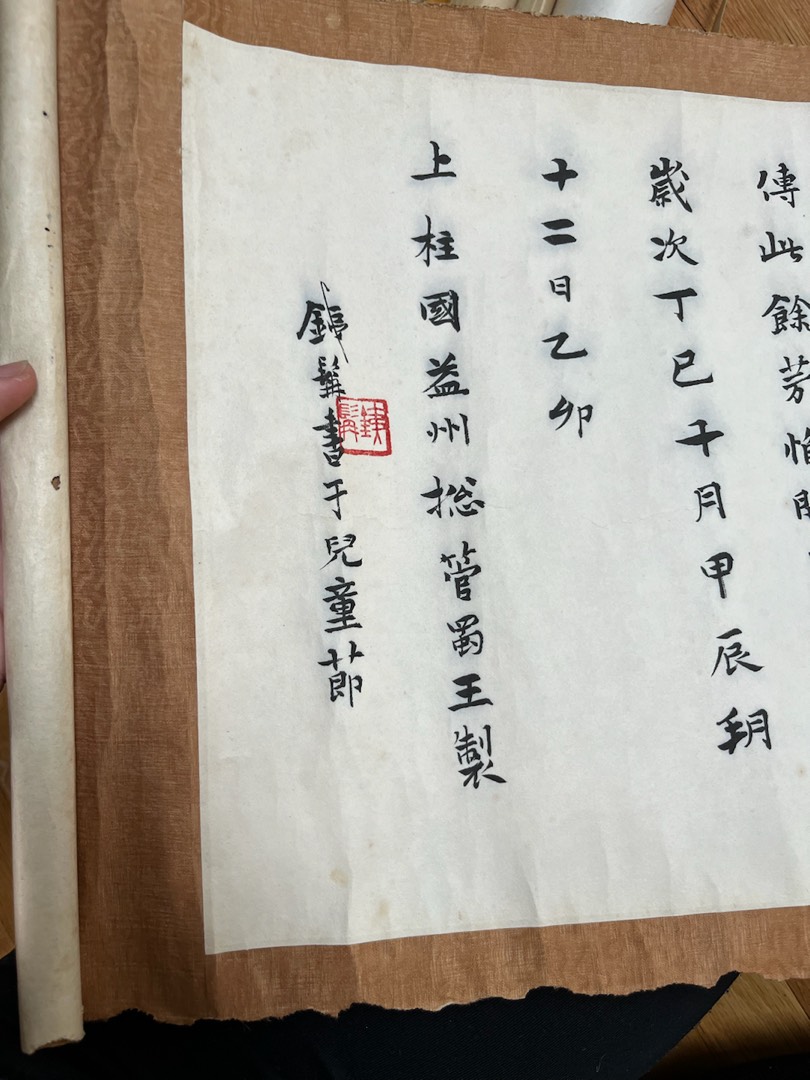 傳此餘芳惟
歲次丁巳千月甲辰朔
十二日乙卯
上柱國益州揔管蜀王製
銕髯書于兒童節
銕髯